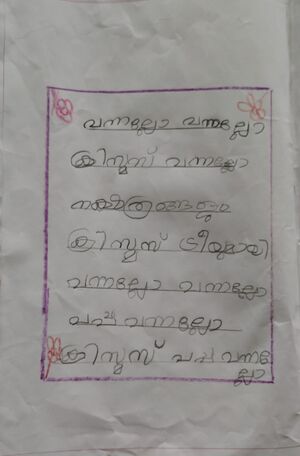 വന്നല്ലോ വന്നല്ലോ
ക്രിസ്മസ് വന്നല്ലോ
നക്ഷത്രങ്ങളും
ക്രിസ്മസ് ട്രീയുമായി
വന്നല്ലോ വന്നല്ലോ
പപ്പ വന്നല്ലോ
ക്രിസ്മസ് പപ്പ വന്ന
ല്ലോ